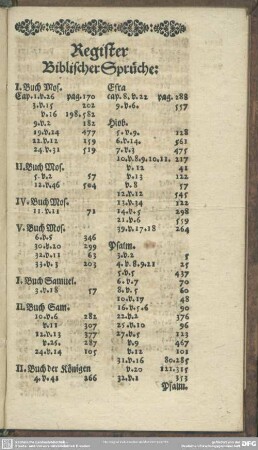 Register
Biblischer Sprüche:
I. Buch Mos.
Cap. 1. v. 26 pag. 170
3. v. 15 202
v. 16 198. 582
9. v. 2 182
19. v. 24 477
22. v. 12 259
24. v. 31 519
II. Buch Mos.
5. v. 2 57
12. v. 46 504
IV. Buch Mos.
11. v. 11 71
V. Buch Mos.
6. v. 5 346
30. v. 20 299
32. v. 11 63
33. v. 3 203
I. Buch Samuel.
3. v. 18 57
II. Buch Sam.
10. v. 6 282
v. 11 307
12. v. 13 377
v. 25. 287
24. v. 14 105
II. Buch der Königen
4. v. 41 266
Esra
cap. 8. v. 22 pag. 188
9. v. 6. 557
Hiob.
5. v. 9. 128
6. v. 14. 561
7. v. 3. 475
10. v. 8. 9. 10. 11. 217
v. 12 41
v. 13 122
v. 8 57
12. v. 12 545
13. v. 34 122
14. v. 5 298
21. v. 6 559
39. v. 17. 18 264
Psalm.
3. v. 2 5
4. v. 8. 9. 21 25
5. v. 5 437
6. v. 7 70
8. v. 5 60
10. v. 17 48
16. v. 5. 6 90
22. v. 2 376
25. v. 10 96
27. v. 5 123
v. 9 467
v. 12 101
31. v. 16 80. 285
v. 20 121. 315
32. v. 1 353
Psalm.